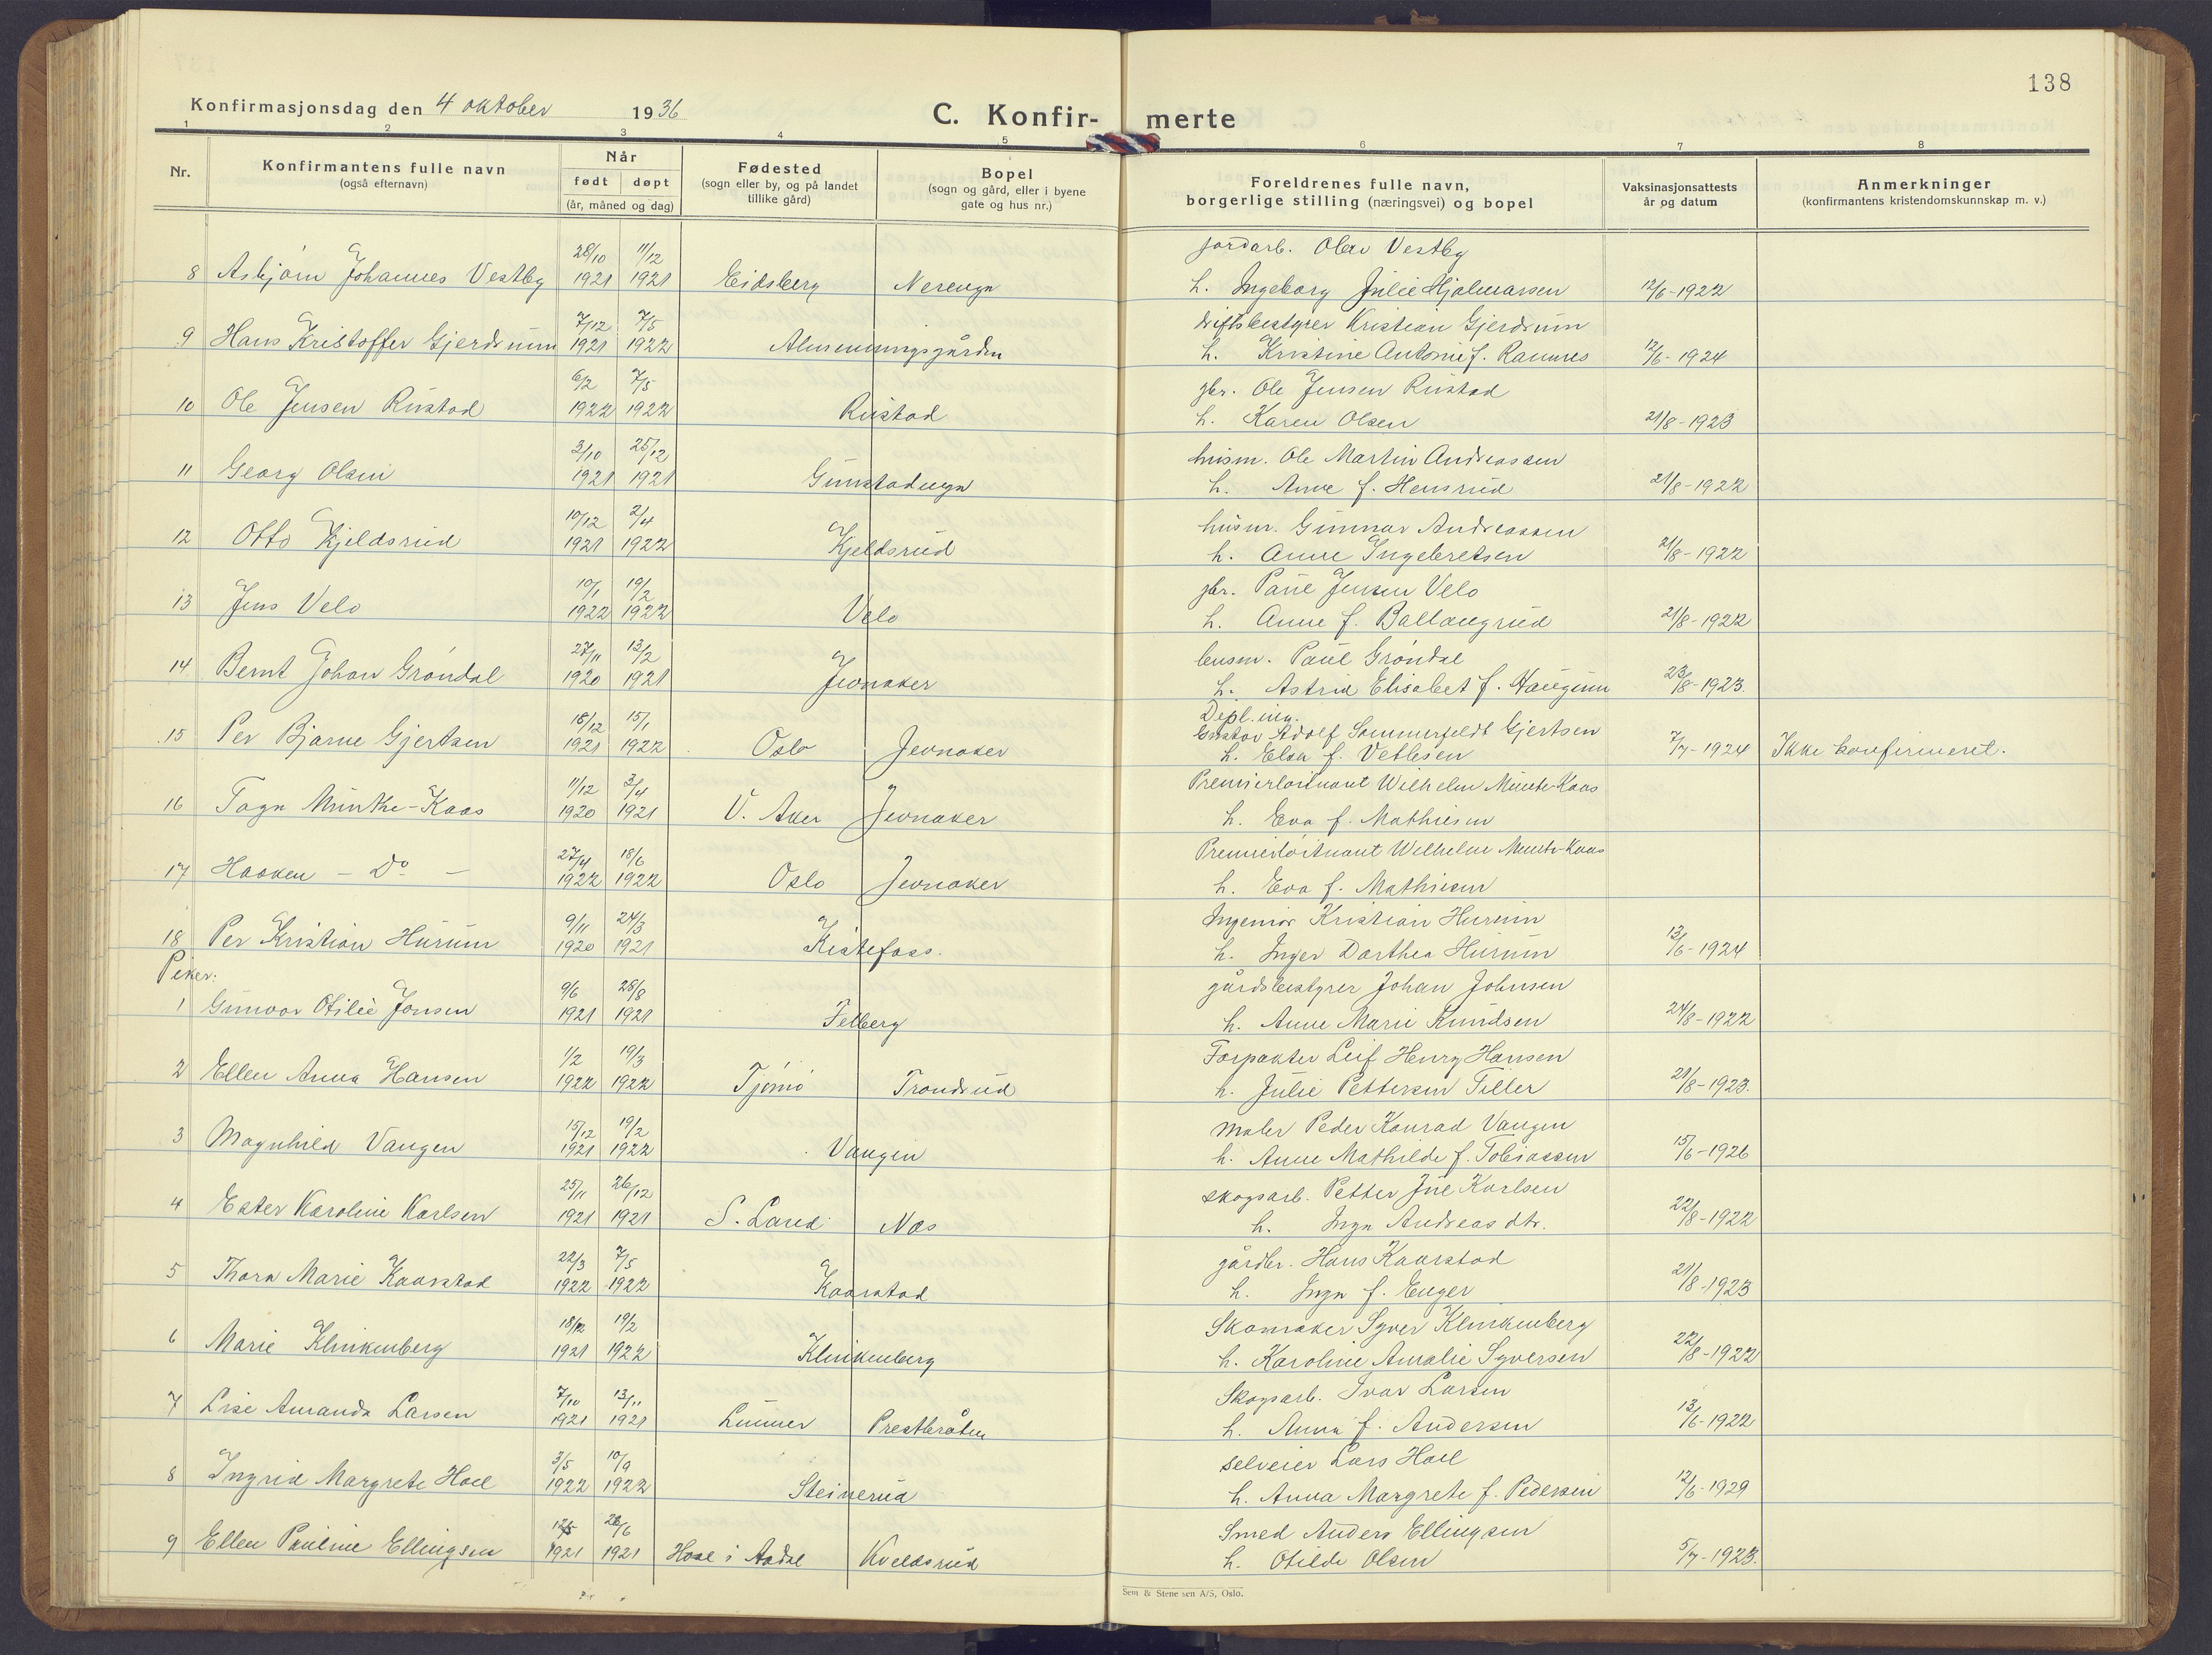 138
Konfirmasjonsdag den 4 oktober 1936
C. Konfir- merte
1 2 3 4 5 6 7 8
Nr.
Konfirmantens fulle navn
(også efternavn)
Når
født døpt
(år, måned og dag)
Fødested
(sogn eller by, og på landet
tillike gård)
Bopel
(sogn og gård, eller i byene
gate og hus nr.)
Foreldrenes fulle navn,
borgerlige stilling (næringsvei) og bopel
Vaksinasjonsattests
år og datum
Anmerkninger
(konfirmantens kristendomskunnskap m. v.)
28/10 11/12 jordarb. Olav Vestby
8 Asbjørn Johannes Vestby 1921 1921 Eidsberg Nerenga h. Ingeborg Julie Hjalmarsen 12/6-1922
7/12 7/5 driftsbestyrer Kristian Gjerdrum
9 Hans Kristoffer Gjerdrum 1921 1922 Almenningsgården h. Kristine Antonie f. Ramnes 12/6-1924
6/2 7/5 gbr. Ole Jensen Rustad
10 Ole Jensen Rustad 1922 1922 Rustad h. Karen Olsen 21/8-1923
3/10 25/12 husm. Ole Martin Andreassen
11 Georg Olsen 1921 1921 Gunstadenga h. Anne f. Hensrud 21/8-1922
10/12 2/4 husm. Gunnar Andreassen
12 Otto Kjeldsrud 1921 1922 Kjeldsrud h. Anne Ingebretsen 21/8-1922
10/1 19/2 gbr. Paul Jensen Velo
13 Jens Velo 1922 1922 Velo h. Anne f. Ballangrud 21/8-1922
27/11 13/2 lensm. Paul Grøndal
14 Bernt Johan Grøndal 1920 1921 Jevnaker h. Astrid Elisabet f. Haugum 23/8-1923.
Dipl.ing.
18/12 15/1 Gustav Adolf Sommerfeldt Gjertsen
15 Per Bjarne Gjertsen 1921 1922 Oslo Jevnaker h. Elsa f. Vetlesen 7/7-1924 Ikke konfirmeret.
11/12 3/4 Premierløitnant Wilhelm Munthe-Kaas
16 Tage Munthe-Kaas 1920 1921 V. Aker Jevnaker h. Eva f. Mathiesen
27/4 18/6 Premierløitnant Wilhelm Munthe-Kaas
17 Haaken - Do - 1922 1922 Oslo Jevnaker h. Eva f. Mathiesen
9/11 24/3 Ingeniør Kristian Hurum
18 Per Kristian Hurum 1920 1921 Kistefoss. h. Inger Dorthea Hurum 13/6-1924
Piker:
9/6 28/8 gårdsbestyrer Johan Johnsen
1 Gunvor Otilie Jonsen 1921 1921 Felberg h. Anne Marie Knudsen 24/8-1922
1/2 19/3 Forpakter Leif Henry Hansen
2 Ellen Anna Hansen 1922 1922 Tjømø Trondrud h. Julie Pettersen Tiller 21/8-1923.
15/12 19/2 maler Peder Konrad Vangen
3 Magnhild Vangen 1921 1922 Vangen h. Anne Mathilde f. Tobiassen 15/6-1926
25/11 26/12 skogsarb. Petter Jul Karlsen
4 Ester Karoline Karlsen 1921 1921 S. Land Næs h. Inga Andreas dtr. 22/8-1922
22/3 7/5 gårdbr. Hans Kaarstad
5 Thora Marie Kaarstad 1922 1922 Kaarstad h. Inga f. Enger 21/8-1923
18/12 19/2 Skomaker Syver Klinkenberg
6 Marie Klinkenberg 1921 1922 Klinkenberg h. Karoline Amalie Syversen 22/8-1922
7/10 13/11 Skogsarb. Ivar Larsen
7 Lise Amanda Larsen 1921 1921 Lunner Prestbråten h. Anna f. Andersen 13/6-1922
3/5 10/9 selveier Lars Hoel
8 Ingrid Margrete Hoel 1922 1922 Steinerud h. Anna Margrete f. Pedersen 12/6-1929
12/5 26/6 Smed Anders Ellingsen
9 Ellen Pauline Ellingsen 1921 1921 Hval i Aadal Kveldsrud h. Otilde Olsen 5/7-1923.
Sem & Stenersen A/S, Oslo.